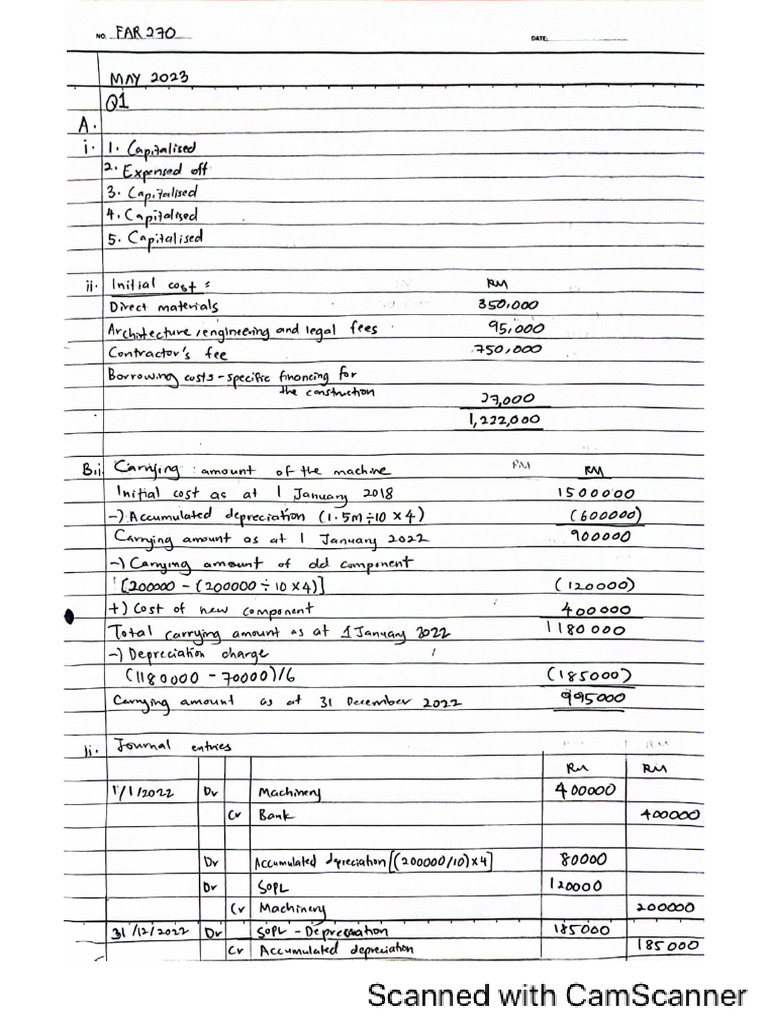 NO. FAR 270
DATE:
MAY 2023
Q1
A.
i. 1. Capitalised
2. Expensed off
3. Capitalised
4. Capitalised
5. Capitalised
ii. Initial cost : RM
Direct materials 350,000
Architecture, engineering and legal fees 95,000
Contractor's fee 750,000
Borrowing costs - specific financing for
the construction 27,000
1,222,000
B.i. Carrying amount of the machine RM
Initial cost as at 1 January 2018 1500000
-) Accumulated depreciation (1.5M ÷ 10 × 4) (600000)
Carrying amount as at 1 January 2022 900000
-) Carrying amount of old component
[200000 - (200000 ÷ 10 × 4)] (120000)
+) Cost of new component 400000
Total carrying amount as at 1 January 2022 1180000
-) Depreciation charge
(1180000 - 70000)/6 (185000)
Carrying amount as at 31 December 2022 995000
ii. Journal entries
RM RM
1/1/2022 Dr Machinery 400000
Cr Bank 400000
Dr Accumulated depreciation [(200000/10)×4] 80000
Dr SOPL 120000
Cr Machinery 200000
31/12/2022 Dr SOPL - Depreciation 185000
Cr Accumulated depreciation 185000
Scanned with CamScanner